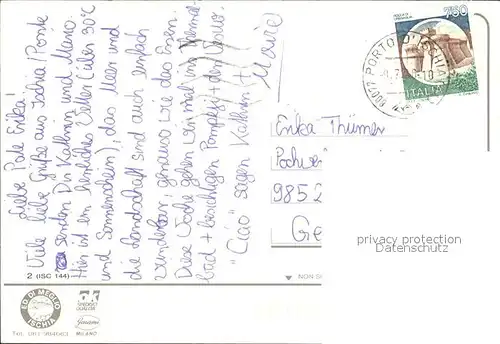 Liebe Pate Erika!
Viele liebe Grüße aus Ischia / Ponte
senden Dir Kathrin und Mario.
Hier ist ein herrliches Wetter (über 30°C
und Sonnenschein), das Meer und
die Landschaft sind auch einfach
wunderbar, genauso wie das Essen.
Diese Woche gehen wir mal ins Thermal-
bad + besichtigen Pompeji + den Vesuv.
"Ciao" sagen Kathrin +
Mario!
2 (ISC 144)
ED. DI MEGLIO
ISCHIA
MILANO
750
ITALIA
80077 PORTO D'ISCHIA
Erika Thümer
985
Ge
NON
privacy protection
Datenschutz